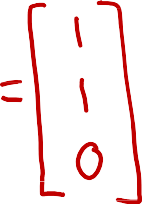 = [ 1
1
0 ]